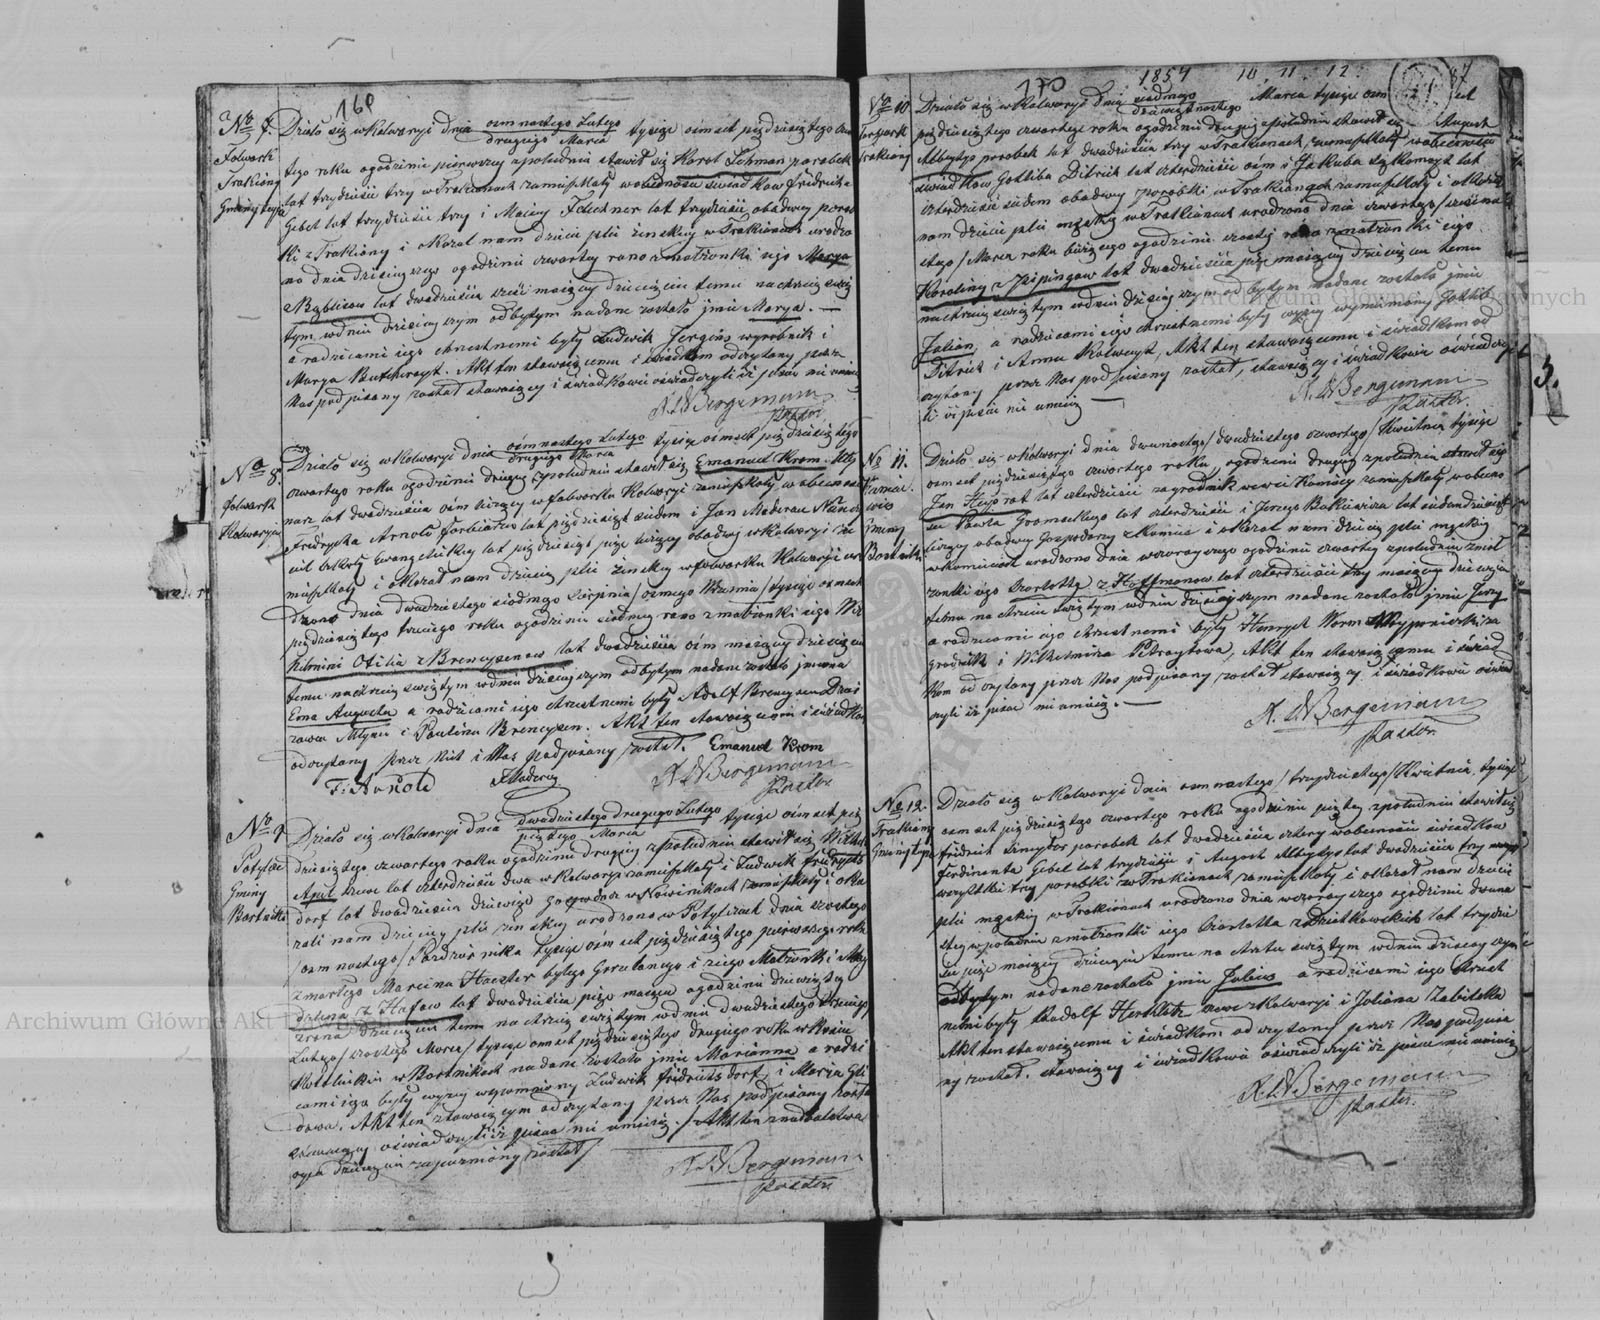 169
No 7.
Folwark
Trakiany
Gminy tegoż
Działo się w Kalwaryi dnia ośmnastego Lutego / drugiego Marca tysiąc ośmset pięćdziesiątego czwar
tego roku o godzinie pierwszey z południa stawił się Karol Lehman parobek
lat trzydzieści trzy w Trakianach zamieszkały w obecności świadków Fridricha
Gebel lat trzydzieści trzy i Maciey Fechner lat trzydzieści obadwey parob
ki z Trakiany i okazał nam dziecie płci żeńskiey w Trakianach urodzo
no dnia dzisieyszego o godzinie czwartey rano z małżonki jego Marya
z lat dwadzieścia sześć maiącey dziecięciu temu na chrzcie świę
tym w dniu dzisieyszym odbytym nadane zostało jmie Marya. —
a rodzicami jego chrzestnemi były Ludwik Jergens wyrobnik i
Marya Butchereyt. Akt ten stawaiącemu i świadkom odczytany przez
Nas podpisany został stawaiący i świadkowie oświadczyli iż pisać nie umieią
A. W Bergemann
Pastor.
No 8.
Folwark
Kalwarya
Działo się w Kalwaryi dnia ośmnastego Lutego / drugiego Marca tysiąc ośmset pięćdziesiątego
czwartego roku o godzinie drugiey z południa stawił się Emanuel Krom. Mły
narz lat dwadzieścia ośm liczący w folwarku Kalwaryi zamieszkały w obecności
Fridrycha Arnold Farbiarza lat pięćdziesiąt siedem i Jan Maderau Nauczy
ciel szkoły Ewangelickiey lat pięćdziesiąt pięć liczący obadwaj w Kalwaryi za
mieszkały i okazał nam dziecie płci żeńskiey w folwarku Kalwaryi uro
dzono dnia dwudziestego siódmego Sierpnia / ósmego Września / tysiąc ośmset
pięćdziesiątego trzeciego roku o godzinie siódmey rano z małżonki jego Wil
helmini Otilia z Brencysenow lat dwadzieścia ośm maiącey dziecięciu
temu na chrzcie świętym w dniu dzisieyszym odbytym nadane zostało jmiona
Ema Augusta a rodzicami jego chrzestnemi były Adolf Brencysen Dzier
żawca Młyna i Paulina Brencysen. Akt ten stawaiącemu i świadkom
odczytany przez Nich i Nas podpisany został. Emanuel Krom
F. Arnold Maderau A. W Bergemann
Pastor
No 9
Potylcze
Gminy
Bartniki
Działo się w Kalwaryi dnia dwudziestego drugiego Lutego / piątego Marca tysiąc ośmset pięć
dziesiątego czwartego roku o godzinie drugiey z południa stawił się Wilhel
Apel lat czterdzieści dwa w Kalwaryi zamieszkały i Ludwik Fridrychs
dorf lat dwadzieścia dziewięć gospodarz w Nowinikach zamieszkały i oka
zali nam dziecięy płci żeńskiey urodzono w Potylczach dnia szóstego
/ ośmnastego / Października tysiąc ośmset pięćdziesiątego pierwszego roku
z martego Marcina Haester byłego i z iego Małżonki Mag
dalena z lat dwadzieścia pięć maiąca o godzinie dziewiątey
z rana dziecięciu temu na chrzcie świętym w dniu dwudziestego trzeciego
Lutego / szóstego Marca / tysiąc ośmset pięćdziesiątego drugiego roku w Kościele
Katolickim w Bartnikach nadane zostało jmie Marianna a rodzi
cami jego były wyżey wspomniony Ludwik Fridrichsdorf i Maria Gli
dowa. Akt ten stawaiącym odczytany przez Nas podpisany został
stawaiący oświadczyli iż pisać nie umieią. / Akt ten z niedbalstwa
oyca dziecięcia zapozniony został /
A. W Bergemann
Pastor
170
1854 10. 11. 12.
87
No 10
Folwark
Trakiany
Działo się w Kalwaryi dnia siódmego / dziewiętnastego Marca tysiąc ośmset
pięćdziesiątego czwartego roku o godzinie drugiey z południa stawił się August
Albużys parobek lat dwadzieścia trzy w Trakianach zamieszkały w obecności
świadków Gottliba Ditrich lat czterdzieści ośm i Jakuba lat
czterdzieści siedem obadwey parobki w Trakianach zamieszkały i okazał
nam dziecie płci męzkiey w Trakianach urodzono dnia czwartego / szesna
stego / Marca roku bieżącego o godzinie szóstey rano z małżonki jego
Karoliny z lat dwadzieścia pięć maiącey dziecięciu temu
na chrzcie świętym w dniu dzisieyszym odbytym nadane zostało jmie
Julian, a rodzicami jego chrzestnemi były wyżey wspomniony Gottlib
Ditrich i Anna Kalweyt, Akt ten stawaiącemu i świadkom od
czytany przez Nas podpisany został, stawaiący i świadkowie oświadczy
li iż pisać nie umieią —
A. W Bergemann
Pastor.
No 11.
Kamie
wis
Gminy
Bartniki
Działo się w Kalwaryi dnia dwunastego / dwudziestego czwartego / Kwietnia tysiąc
ośmset pięćdziesiątego czwartego roku, o godzinie drugiey z południa stawił się
Jan lat czterdzieści zagrodnik we wsi zamieszkały w obecno
ści Karla lat czterdzieści i Jerzego lat siedemdziesiąt
liczący obadwey Gospodarzy z i okazał nam dziecie płci męzkiey
w urodzono dnia wczorayszego o godzinie czwartey z południa z mał
żonki jego Szarlotty z Hoffmanow lat czterdzieści trzy maiącey dziecięciu
temu na chrzcie świętym w dniu dzisieyszym nadane zostało jmie Jerzy
a rodzicami jego chrzestnemi były Henrych Worm
grodnik i Wilhelmina Petraytowa, Akt ten stawaiącemu i świad
kom odczytany przez Nas podpisany został stawaiący i świadkowie oświad
czyli iż pisać nie umieią. —
A. W Bergemann
Pastor.
No 12.
Trakiany
Gminy tegoż
Działo się w Kalwaryi dnia ośmnastego / trzydziestego / Kwietnia, tysiąc
ośmset pięćdziesiątego czwartego roku o godzinie piątey z południa stawił się
Fridrich parobek lat dwadzieścia cztery w obecności świadków
Ferdinanta Gebel lat trzydzieści i August Albużys lat dwadzieścia trzy
wszystki trzy parobki w Trakianach zamieszkały i okazał nam dziecie
płci męzkiey w Trakianach urodzono dnia wczorayszego o godzinie dwuna
stey w południe z małżonki jego Szarlotta z lat trzydzie
ści pięć maiącey dziecięciu temu na chrzcie świętym w dniu dzisieyszym
odbytym nadane zostało jmie Julius a rodzicami jego chrzest
nemi były Radolf z Kalwaryi i Juliana Zabitzka
Akt ten stawaiącemu i świadkom odczytany przez Nas podpisa
ny został. stawaiący i świadkowie oświadczyli iż pisać nie umieią
A. W Bergemann
Pastor.
3.
Archiwum Główne Akt Dawnych
Archiwum Główne Akt Dawnych